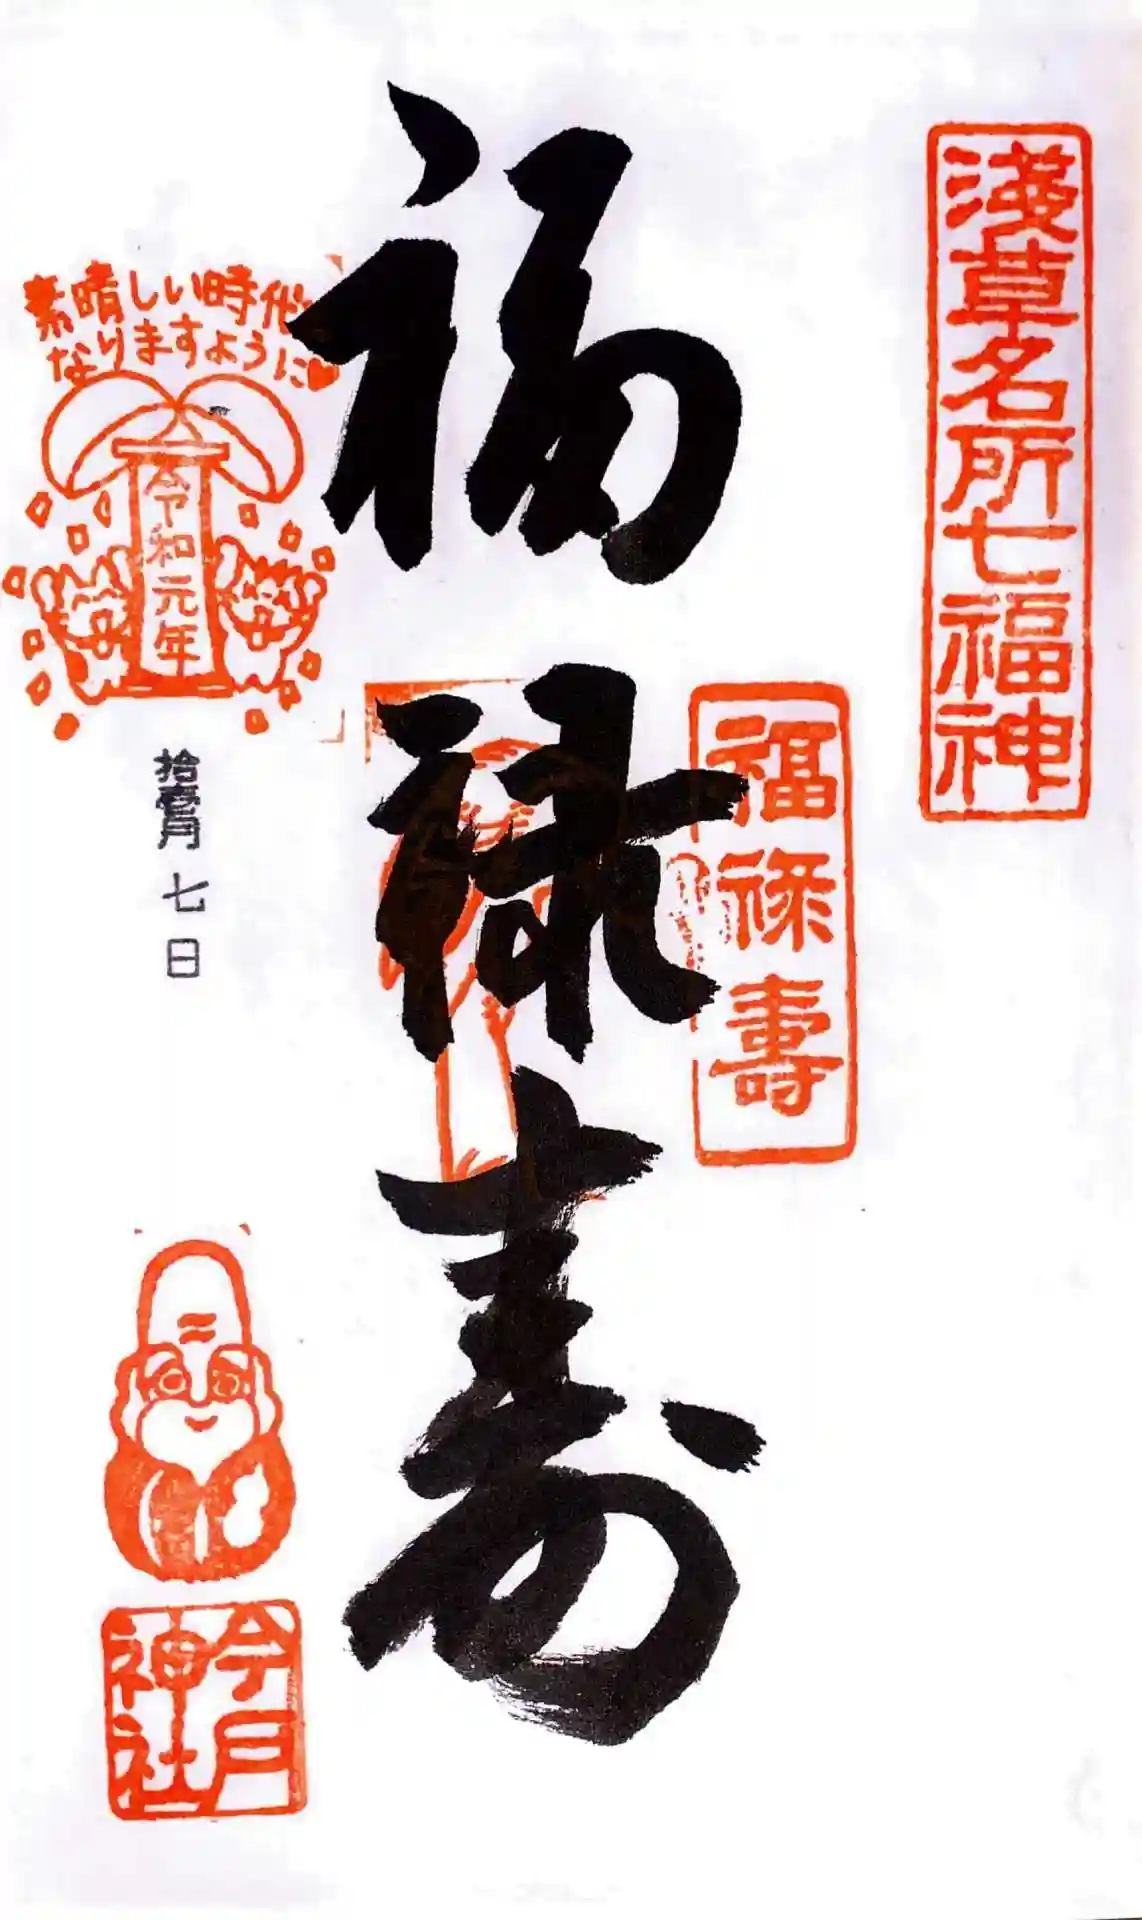 淺草名所七福神
福祿壽
福禄寿
素晴しい時代に
なりますように♥
令和元年
拾壹月七日
今戸
神社